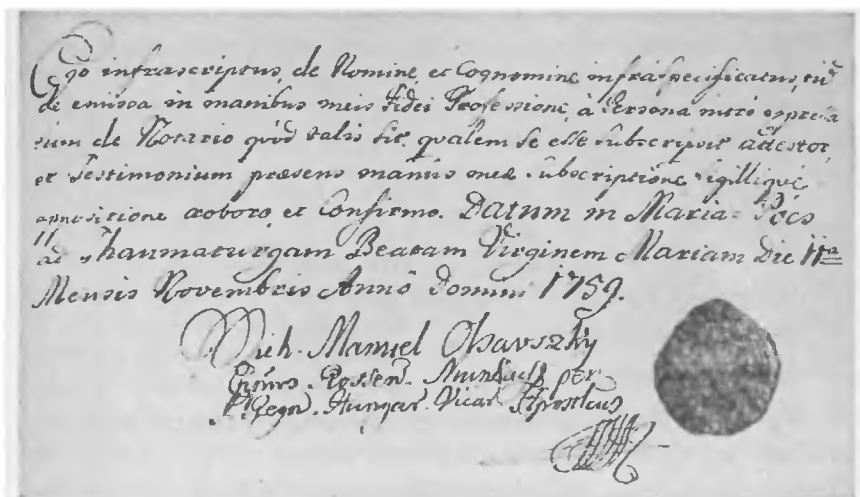 Ego infrascriptus, de Nomine, et Cognomine infraspecificatus, tũ
de emissa in manibus meis Fidei Professione, à Persona intro expressa
tum de Notario quòd talis sit, qualem se esse subscripsit adtestor,
et Testimonium præsens manus meæ subscriptione, sigillique
appositione roboro et Confirmo. Datum in Maria-Pócs
ad Thaumaturgam Beatam Virginem Mariam Die 11ᵃ
Mensis Novembris Annô Domini 1759.
Mich. Manuel Olsavszky
Eppus. Rossen. Munkacs per
Regn. Hungar. Vicar. Apostlcus